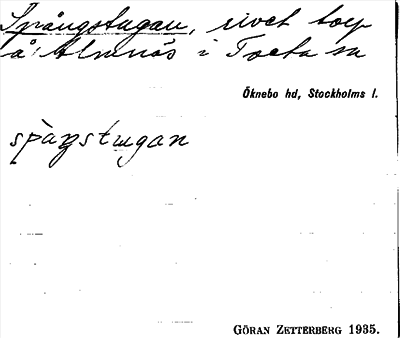 Spångstugan, rivet torp
å Almnäs i Taeta sn
Öknebo hd, Stockholms l.
spàŋstugan
GÖRAN ZETTERBERG 1935.